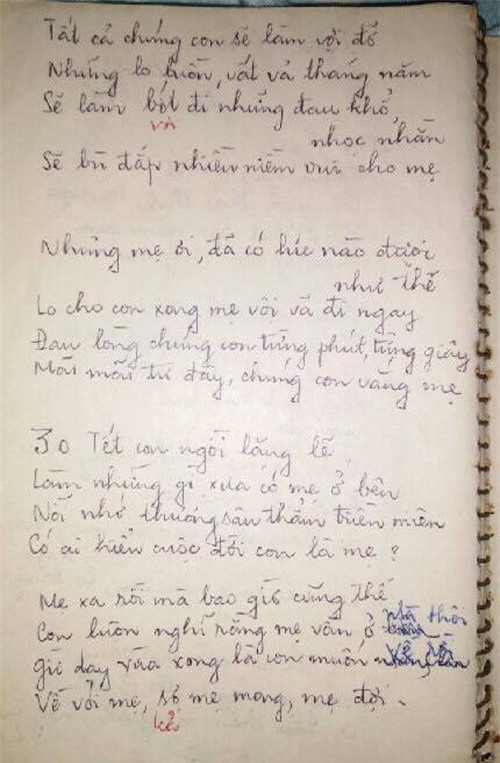 Tất cả chúng con sẽ làm vợi đổ
Những lo buồn, vất vả tháng năm
Sẽ làm bớt đi những đau khổ,
vơi
nhọc nhằn
Sẽ bù đắp nhiều niềm vui cho mẹ
Nhưng mẹ ơi, đã có lúc nào được
như thế
Lo cho con xong mẹ vội vã đi ngay
Đau lòng chúng con từng phút, từng giây
Mãi mãi từ đây, chúng con vắng mẹ
30 Tết con ngồi lặng lẽ
Làm những gì xưa có mẹ ở bên
Nỗi nhớ thương sâu thẳm triền miên
Có ai hiểu cuộc đời con là mẹ?
Mẹ xa rồi mà bao giờ cũng thế
Con luôn nghĩ rằng mẹ vẫn ở nhà thôi
Giờ dạy vừa xong là con muốn về rồi
Về với mẹ, sợ mẹ mong, mẹ đợi.
kẻo